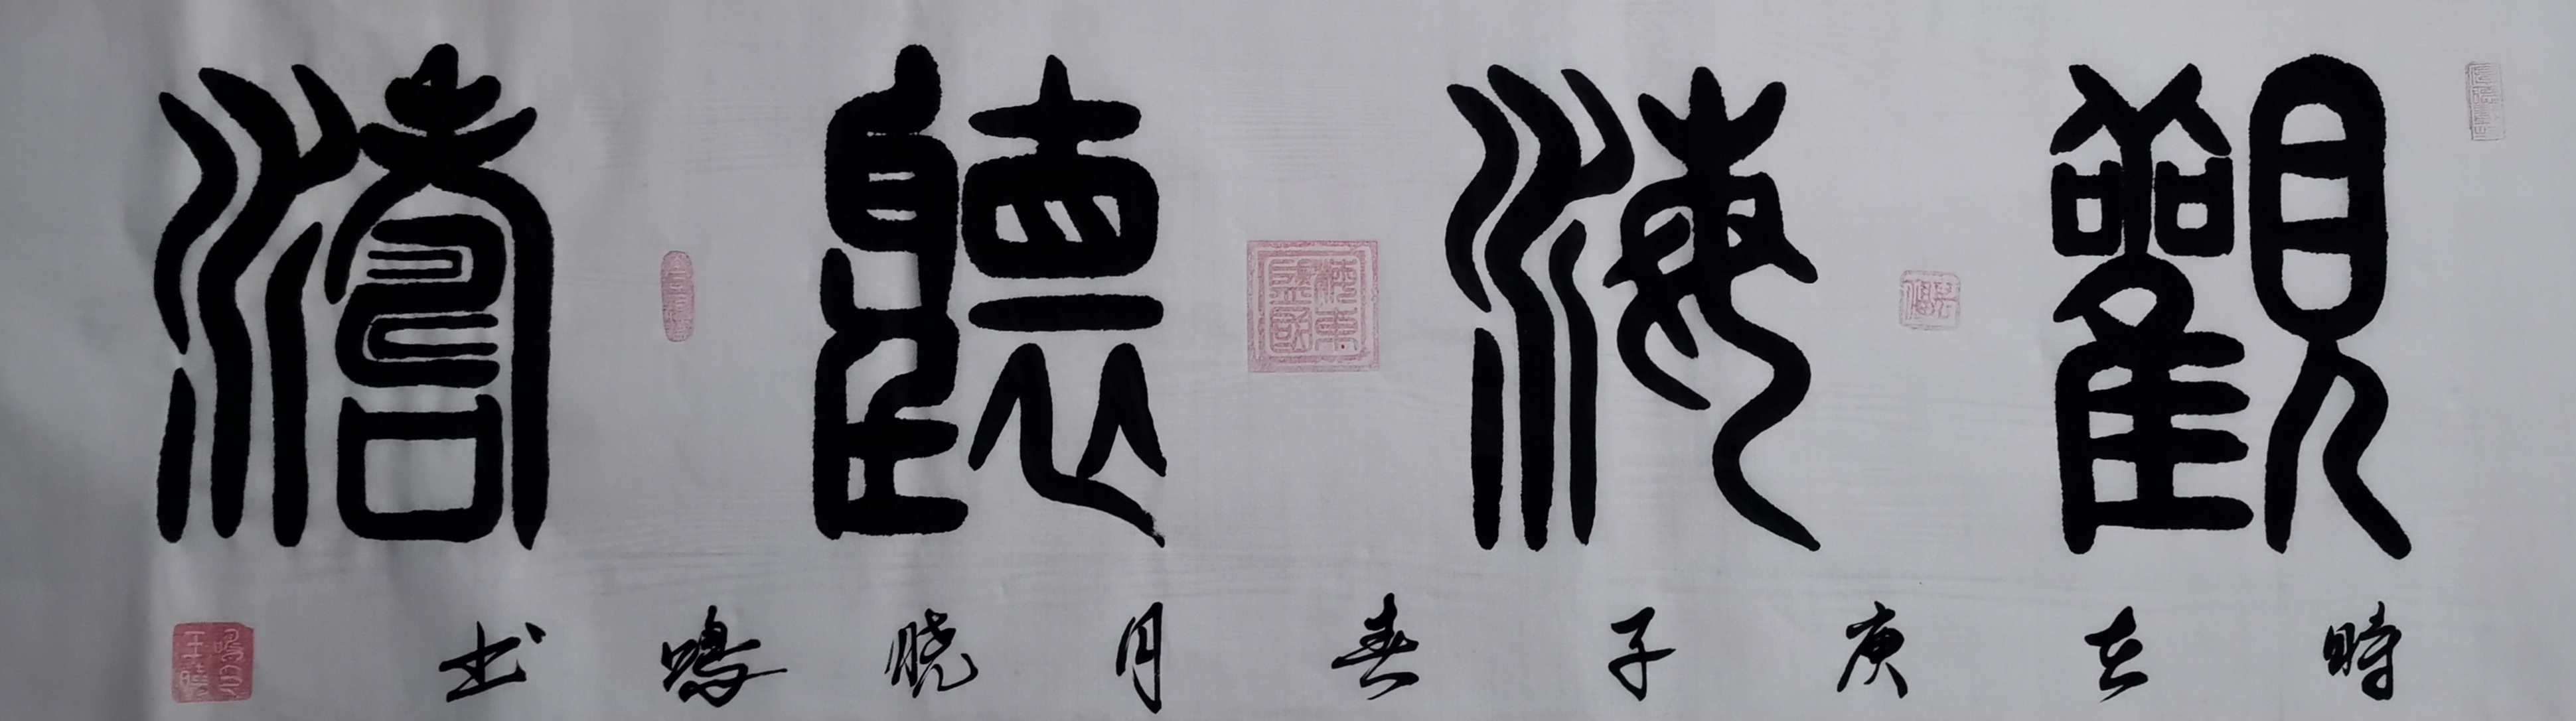 觀海聽濤
時在庚子春月曉鳴书